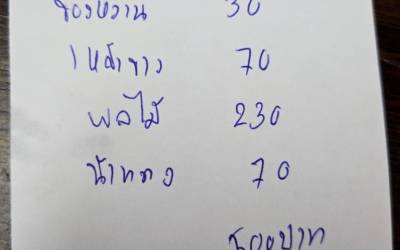 ของหวาน 30
เหล้าขาว 70
ผลไม้ 230
น้ำแดง 70